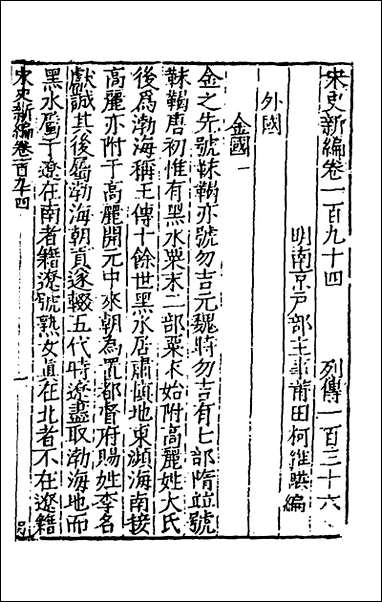 宋史新編卷一百九十四　列傳一百三十六
明南京戶部主事莆田柯維騏編
外國
金國一
金之先號靺鞨亦號勿吉元魏時勿吉有七部隋竝號
靺鞨唐初惟有黑水粟末二部粟末始附高麗姓大氏
後爲渤海稱王傳十餘世黑水居肅慎地東瀕海南接
高麗亦附于高麗開元中來朝為置都督府賜姓李名
獻誠其後屬渤海朝貢遂輟五代時遼盡取渤海地而
黑水屬于遼在南者籍遼號熟女真在北者不在遼籍
宋史新編卷一百九十四　一